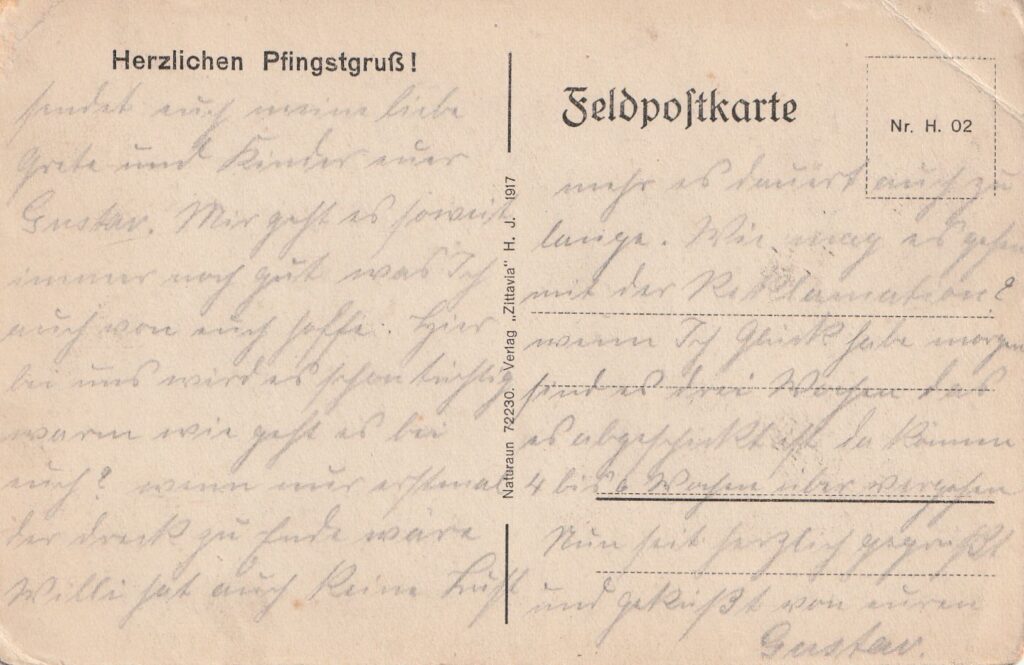 Herzlichen Pfingstgruß!
sendet euch meine liebe
Grete und Kinder euer
Gustav. Mir geht es soweit
immer noch gut was Ich
auch von euch hoffe. Hier
bei uns wird es schon tüchtig
warm wie geht es bei
euch? wenn nur erstmal
der dreck zu Ende wäre
Willi hat auch keine Lust
Naturaun 72230. Verlag „Zittavia" H. J. 1917
Feldpostkarte
Nr. H. 02
mehr es dauert auch zu
lange. Wie mag es gehen
mit der Reklamation?
wenn Ich Glück habe morgen
sind es drei Wochen das
es abgeschickt ist da können
4 bis 6 Wochen über vergehen
Nun seit herzlich gegrüßt
und geküßt von euren
Gustav.